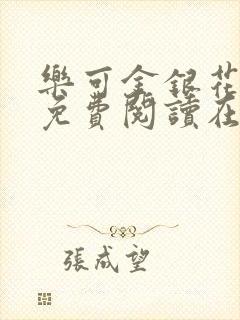 樂可金銀花
免費閱讀在
張成望